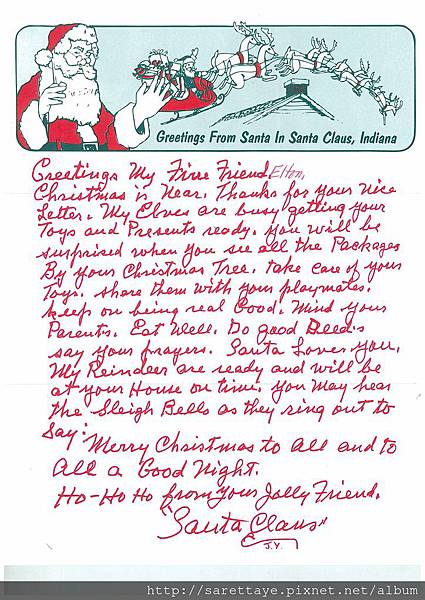 Greetings From Santa In Santa Claus, Indiana
Greetings My Fine Friend Elton,
Christmas is Near. Thanks for your nice
Letter. My Elves are busy getting your
Toys and Presents ready. You will be
surprised when you see all the Packages
By your Christmas Tree. take care of your
Toys. share them with your playmates.
keep on being real Good. Mind your
Parents. Eat Well. Do good Deeds
say your prayers. Santa Loves you.
My Reindeer are ready and will be
at your House on time. you May hear
the Sleigh Bells as they ring out to
Say:
"Merry Christmas to All and to
All a Good Night.
Ho-Ho Ho from your Jolly Friend.
"Santa Claus"
J.Y.
http://sarettaye.pixnet.net/album